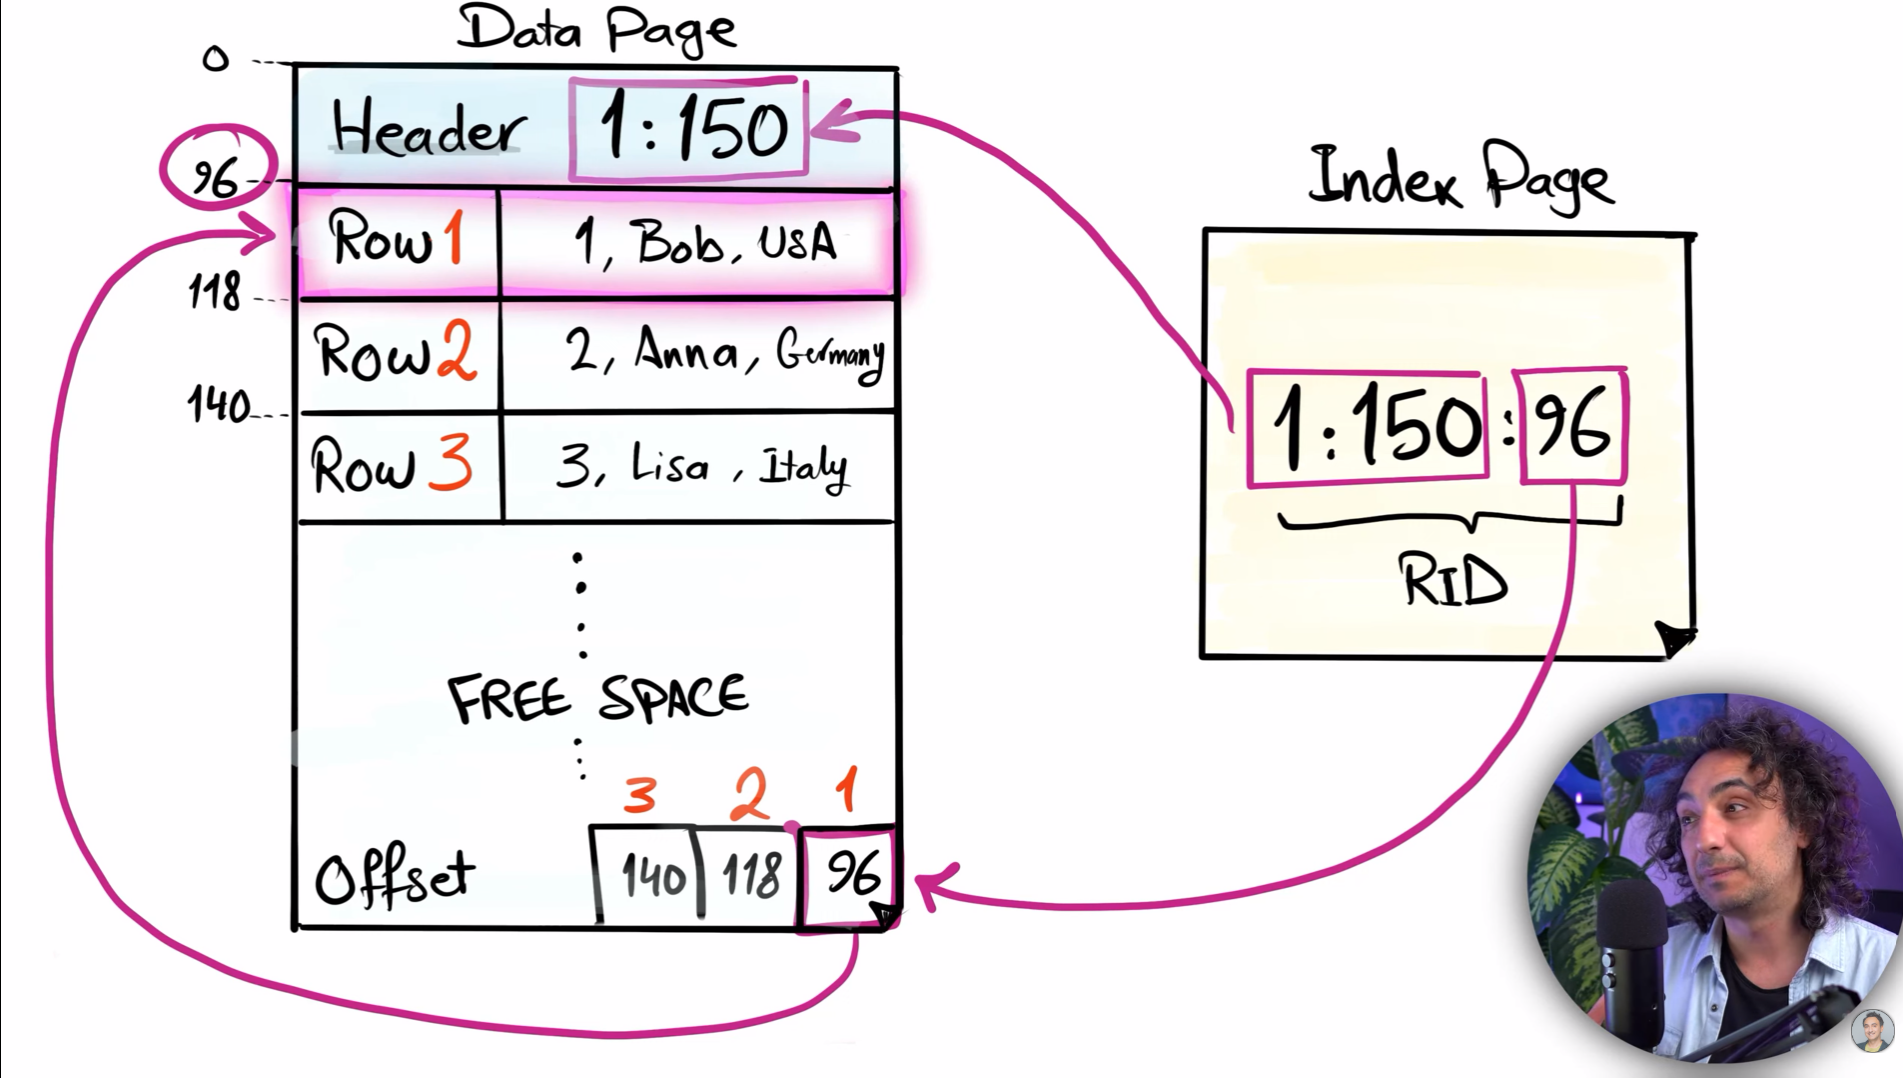 Data Page
0
Header 1:150
96
Row 1 1, Bob, USA
118
Row 2 2, Anna, Germany
140
Row 3 3, Lisa, Italy
FREE SPACE
3 2 1
Offset 140 118 96
Index Page
1:150:96
RID